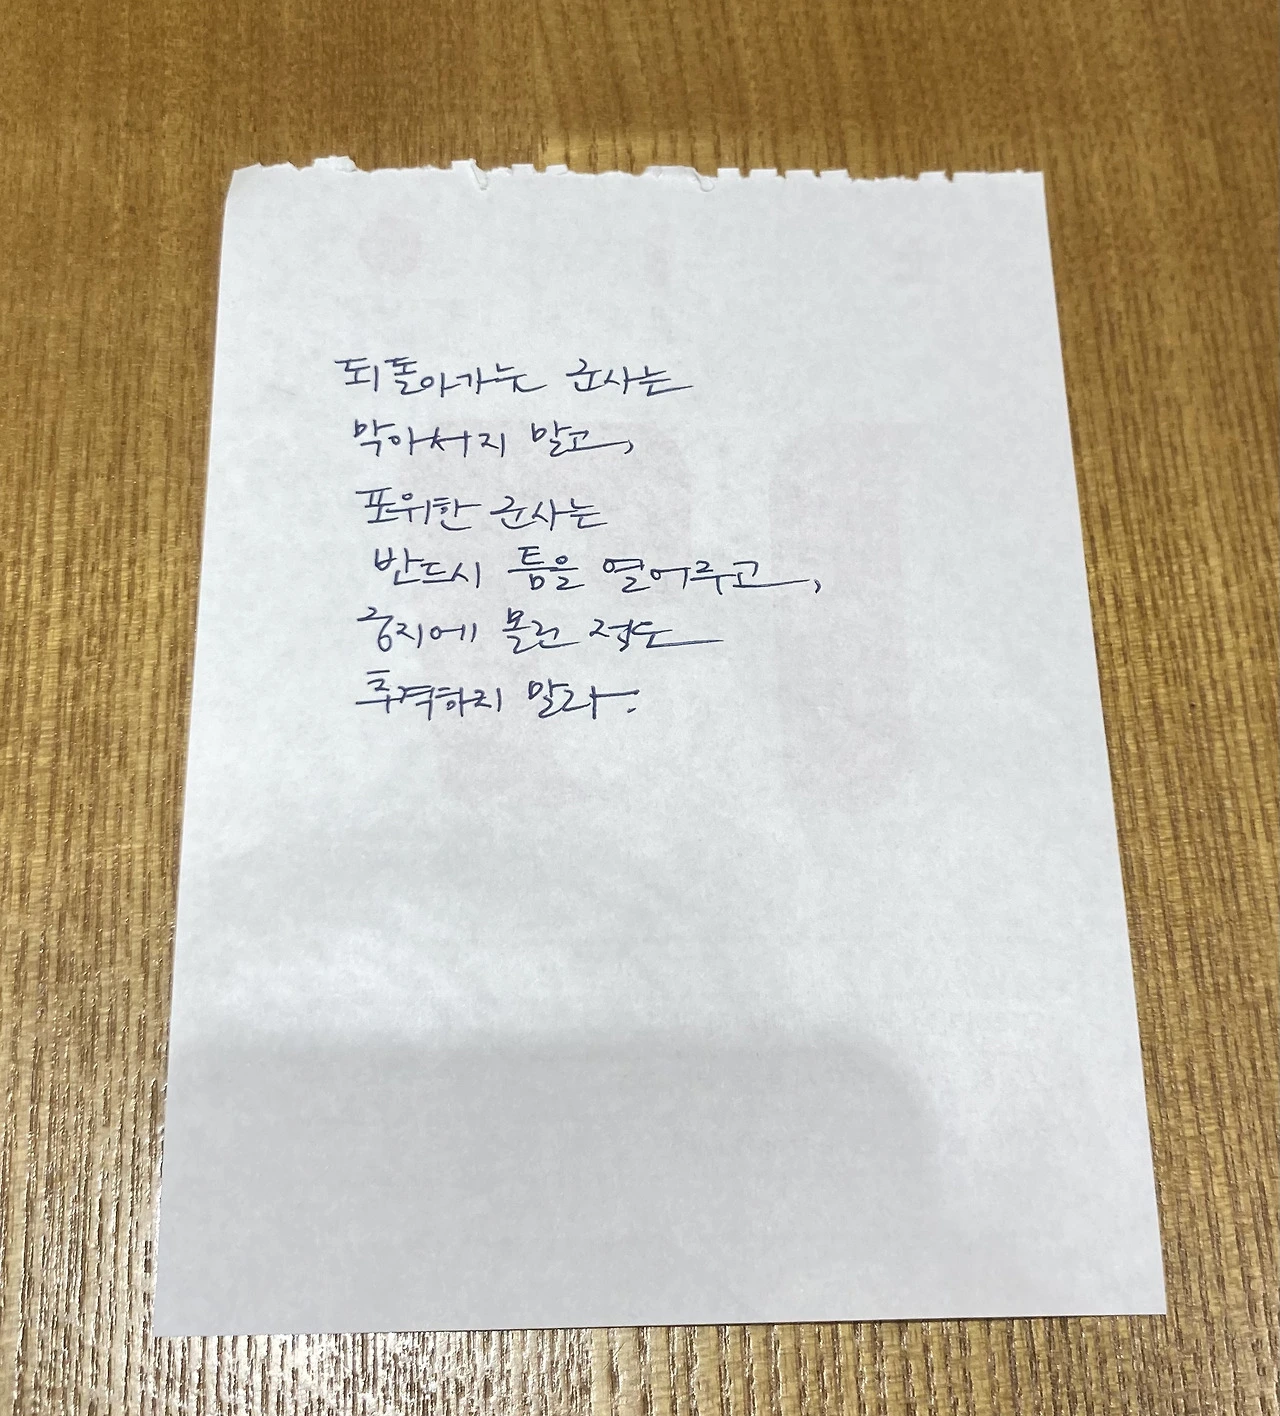 되돌아가는 군사는
막아서지 말고,
포위한 군사는
반드시 틈을 열어주고,
궁지에 몰린 적도
추격하지 말라.